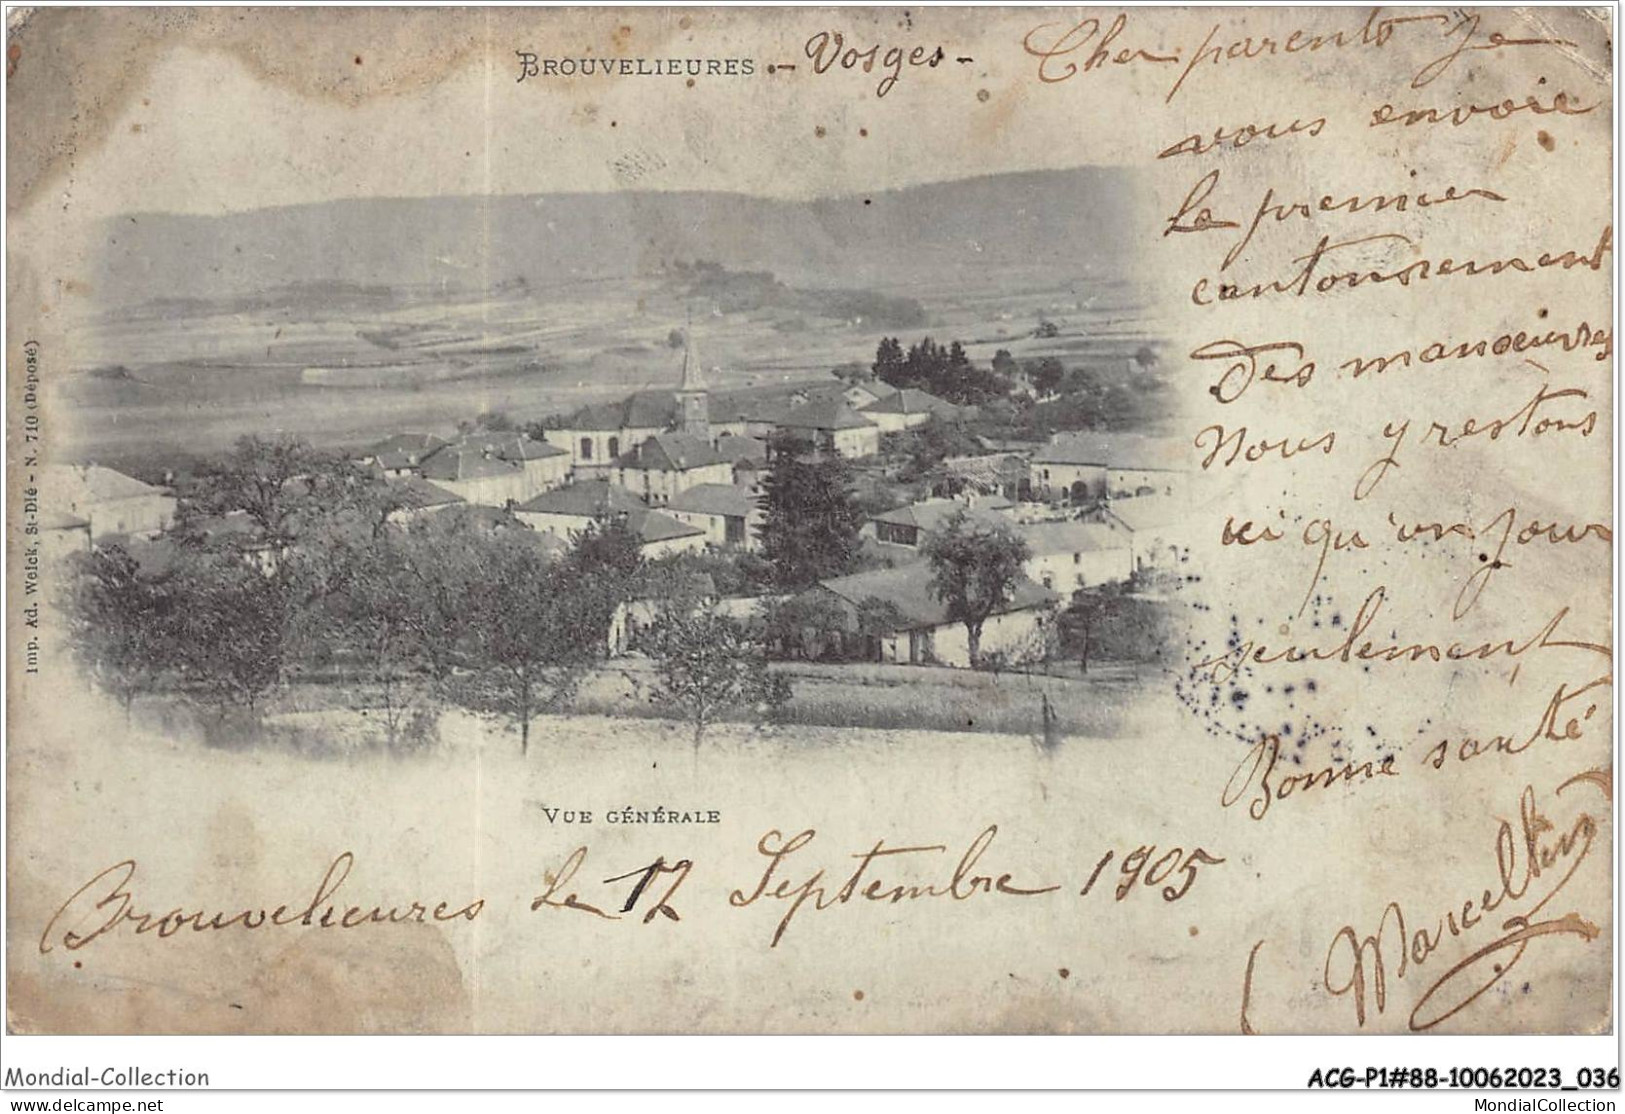 BROUVELIEURES - Vosges -
Cher parents Je
vous envoie
Le premier
cantonnement
Des manoeuvres
Nous y restons
ici qu'un jour
seulement
Bonne santé
Marcellin
VUE GÉNÉRALE
Brouvelieures Le 12 Septembre 1905
Imp. Ad. Welck, St-Dié - N. 710 (Déposé)
Mondial-Collection
ACG-P1#88-10062023_036
delcampe.net
MondialCollection